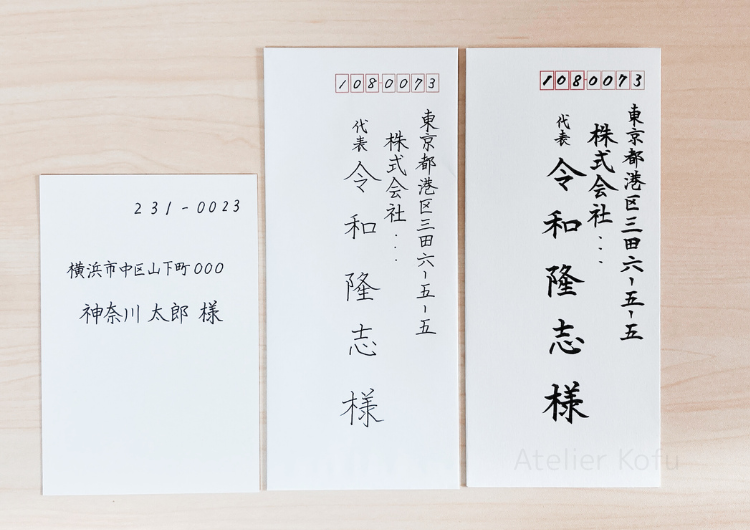 231-0023
横浜市中区山下町000
神奈川太郎 様
108-0073
東京都港区三田六-五-五
株式会社...
代表 令和隆志様
108-0073
東京都港区三田六-五-五
株式会社...
代表 令和隆志様
Atelier Kofu